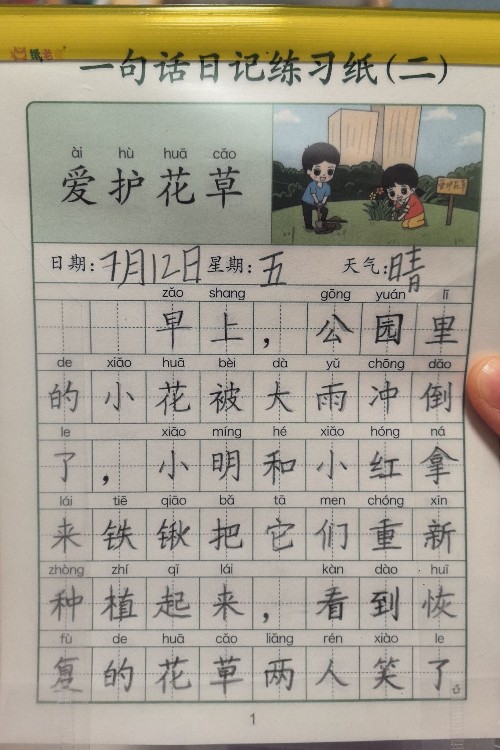 纸老
一句话日记练习纸(二)
ài hù huā cǎo
爱护花草
爱护花草
日期:7月12日 星期:五 天气:晴
zǎo shang gōng yuán lǐ
早上，公园里
de xiǎo huā bèi dà yǔ chōng dǎo
的小花被大雨冲倒
le xiǎo míng hé xiǎo hóng ná
了，小明和小红拿
lái tiě qiāo bǎ tā men chóng xīn
来铁锹把它们重新
zhòng zhí qǐ lái kàn dào huī
种植起来，看到恢
fù de huā cǎo liǎng rén xiào le
复的花草两人笑了
1